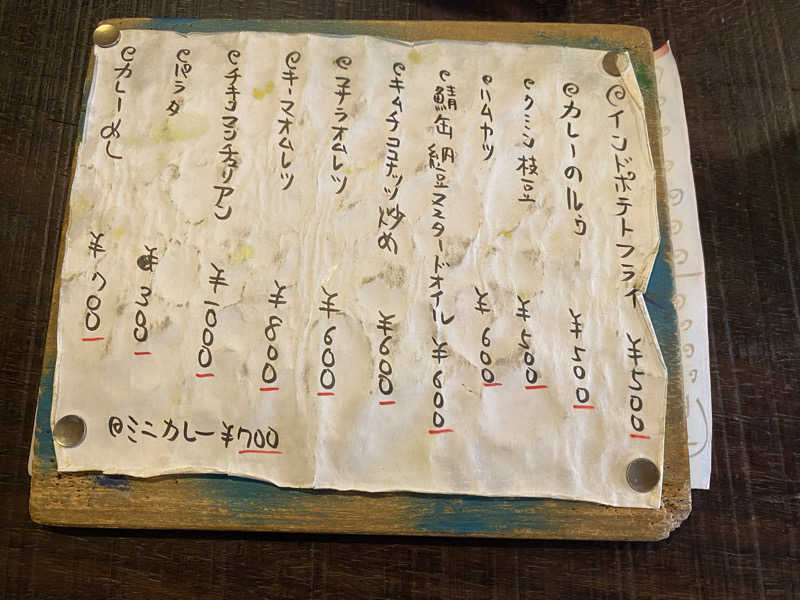 インドポテトフライ ¥500
カレーのルウ ¥500
クミン枝豆 ¥500
ハムカツ ¥600
鯖缶納豆マスタードオイル ¥600
キムチココナッツ炒め ¥600
マサラオムレツ ¥600
キーマオムレツ ¥800
チキンマンチュリアン ¥1000
パラダ ¥300
カレーめし ¥700
ミニカレー ¥700